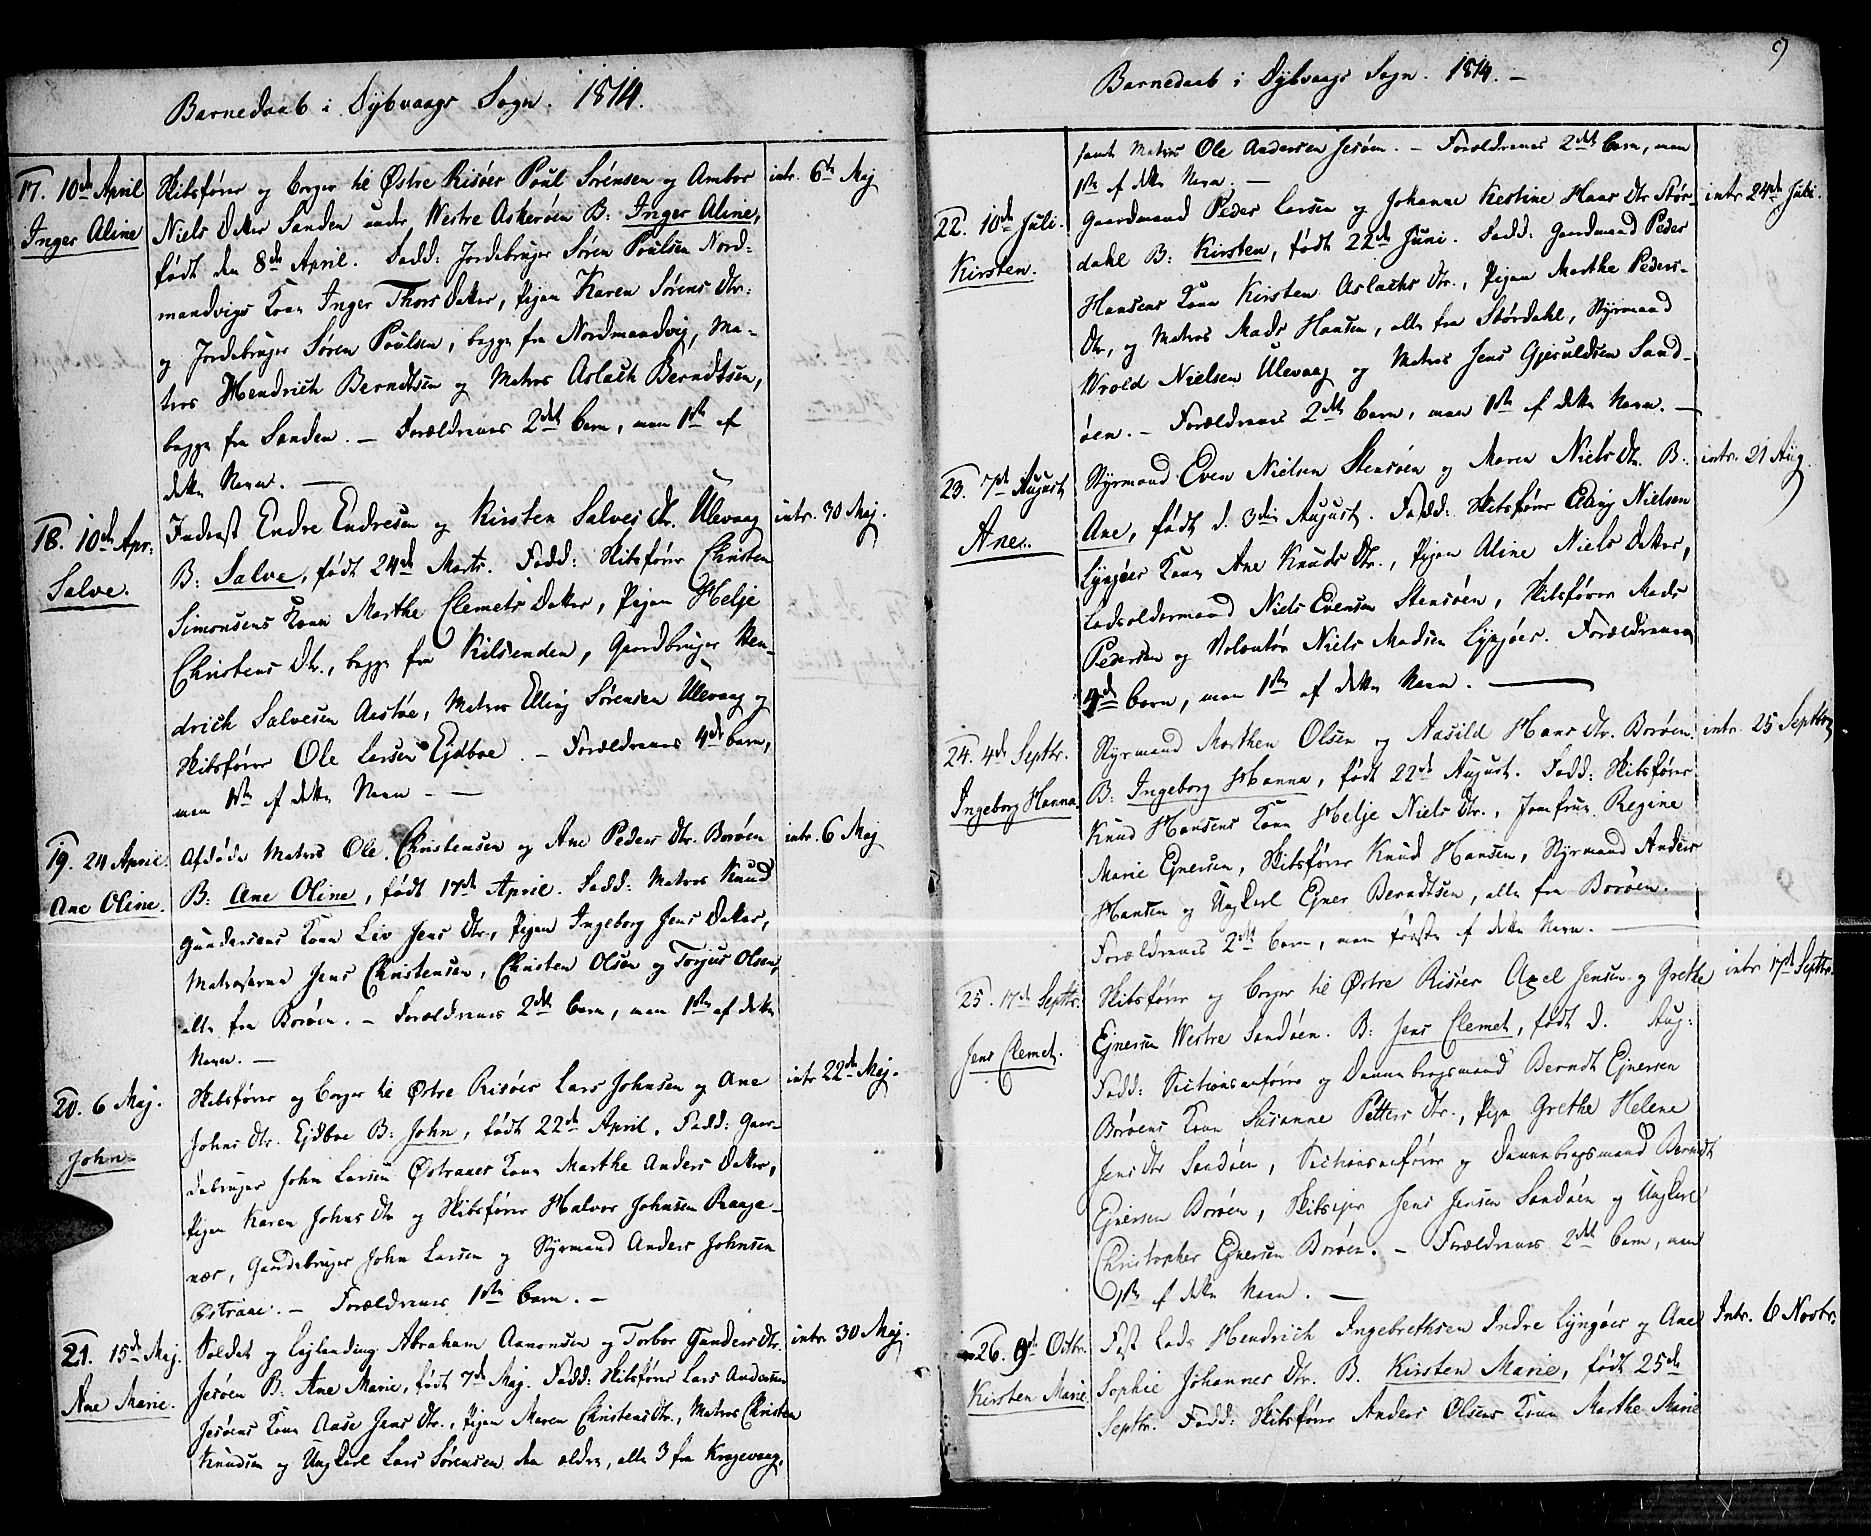 Barnedaab i Dÿbvaags Sogn. 1814.
17. 10de April
Inger Aline
Skibsfører og borger til Østre Risöer Poul Sörensen og Ambor
Niels Datter Sanden under Westre Askeröen B: Inger Aline,
født den 8de April. Fadd: Jordebruger Sören Poulsen Nord-
mandvigs Kone Inger Thors Datter, Pigen Karen Sörens Dtr:
og Jordebruger Sören Poulsen, begge fra Nordmandvig, Ma-
tros Hendrich Berndtsen og Matros Aslach Berndtsen,
begge fra Sanden. – Forældrenes 2det barn, men 1ste af
dette Navn. –
intr. 6te Maj
18. 10de Apr:
Salve.
Inderst Endre Endresen og Kirsten Salves Dtr. Ulevaag
B: Salve, født 24de Marts. Fadd: Skibsfører Christen
Simonsens Kone Marthe Clemets Datter, Pigen Helje
Christens Dtr., begge fra Kilsenden, Gaardbruger Hen-
drich Salvesen Aastøe, Matros Elling Sörensen Ulevaag og
Skibsfører Ole Larsen Ejdboe. – Forældrenes 4de barn,
men 1ste af dette Navn – –
intr. 30 Maj.
19. 24 April.
Ane Oline.
Afdøde Matros Ole Christensen og Ane Peders Dtr. Boröen
B: Ane Oline, født 17de April. Fadd: Matros Knud
Gundersens Kone Liv Jens Dtr., Pigen Ingeborg Jens Datter,
Matroserne Jens Christensen, Christen Olsen og Torjus Olsen,
alle fra Boröen. – Forældrenes 2det barn, men 1ste af dette
Navn. –
intr. 6 Maj
20. 6 Maj.
John
Skibsfører og borger til Østre Risöer Lars Johnsen og Ane
Johns Dtr. Ejdboe B: John, født 22de April. Fadd: Gaar-
debruger John Larsen Östraaes Kone Marthe Anders Datter,
Pigen Karen Johns Dtr og Skibsfører Halvor Johnsen Raage-
nær, Gaardebruger John Larsen og Styrmand Anders Johnsen
Östraae. – Forældrenes 1ste barn. –
intr 22de Maj.
21. 15de Maj.
Ane Marie.
Soldat og Lejlænding Abraham Aanonsen og Torbor Gunders Dtr.
Jesöen B: Ane Marie, født 7de Maj. Fadd: Skibsfører Lars Andersen
Jesöens Kone Aase Jens Dtr., Pigen Maren Christens Dtr., Matros Christen
Knudsen og Ungkarl Lars Sörensen den ældre, alle 3 fra Kragevaag,
intr. 30 Maj.
9
Barnedaab i Dÿbvaags Sogn. 1814. –
samt Matros Ole Andersen Jesöen. – Forældrenes 2det barn, men
1ste af dette Navn. –
22. 10de Juli.
Kirsten.
Gaardmand Peder Larsen og Johanne Kestine Haas Dtr Stør-
dahl B: Kirsten, født 22de Juni. Fadd: Gaardmand Peder
Hansens Kone Kirsten Aslachs Dtr., Pigen Marthe Peders-
Dtr, og Matros Mads Hansen, alle fra Størdahl, Styrmand
Wrold Nielsen Ulevaag og Matros Jens Gjeruldsen Sand-
öen. – Forældrenes 2det barn, men 1ste af dette Navn. –
intr 24de Juli.
23. 7de August
Ane.
Styrmand Even Nielsen Stensöen og Maren Niels Dtr. B:
Ane, født d. 3die August. Fadd: Skibsfører Elling Nielsen
Lyngöes Kone Ane Knuds Dtr., Pigen Aline Niels Datter,
Lodsoldermand Niels Evensen Stensöen, Skibsfører Mads
Pedersen og Volontør Niels Madsen Lyngöer. Forældrenes
4de barn, men 1ste af dette Navn. –
intr. 21 Aug.
24. 4de Septbr.
Ingeborg Hanna.
Styrmand Morthen Olsen og Aasild Hans Dtr. Boröen.
B: Ingeborg Hanna, født 22de August. Fadd: Skibsfører
Knud Hansens Kone Helje Niels Dtr., Jomfrue Regine
Marie Ejnersen, Skibsfører Knud Hansen, Styrmand Anders
Hansen og Ungkarl Ejner Berndtsen, alle fra Boröen.
Forældrenes 2det barn, men første af dette Navn. –
intr. 25 Septbr
25. 17de Septbr.
Jens Clemet.
Skibsfører og borger til Østre Risöer Axel Jensen og Grethe
Ejnersen Westre Sandöen. B: Jens Clemet, født d. Aug:
Fadd: Sectionsanfører og Dannebrogsmand Berndt Ejnersen
Boröens Kone Susanne Petters Dtr., Pige Grethe Helene
Jens Dtr Sandöen, Sectionsanfører og Dannebrogsmand Berndt
Ejnersen Boröen, Skibsejer Jens Jensen Sandöen og Ungkarl
Christopher Ejnersen Boröen. – Forældrenes 2det barn, men
1ste af dette Navn. –
intr 17de Septbr.
26. 9de Octbr.
Kirsten Marie
Fast Lods Hendrich Ingebrethsen Indre Lyngöer og Ane
Sophie Johannes Dtr. B. Kirsten Marie, født 25de
Septbr. Fadd: Skibsfører Anders Olsens Kone Marthe Marie
Intr. 6 Novbr: